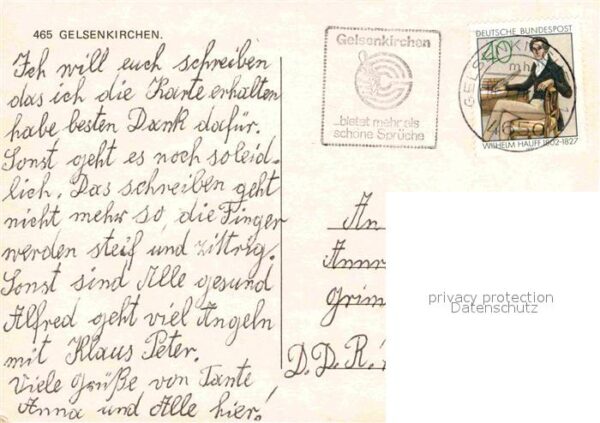 465 GELSENKIRCHEN.
Ich will euch schreiben
das ich die Karte erhalten
habe besten Dank dafür.
Sonst geht es noch soleid-
lich. Das schreiben geht
nicht mehr so, die Finger
werden steif und zittrig.
Sonst sind Alle gesund
Alfred geht viel Angeln
mit Klaus Peter.
Viele Grüße von Tante
Anna und Alle hier!
Gelsenkirchen
...bietet mehr als
schöne Sprüche
DEUTSCHE BUNDESPOST
40
WILHELM HAUFF 1802-1827
GELSENKI
mh
4650
An
Grim
D.D.R.
privacy protection
Datenschutz